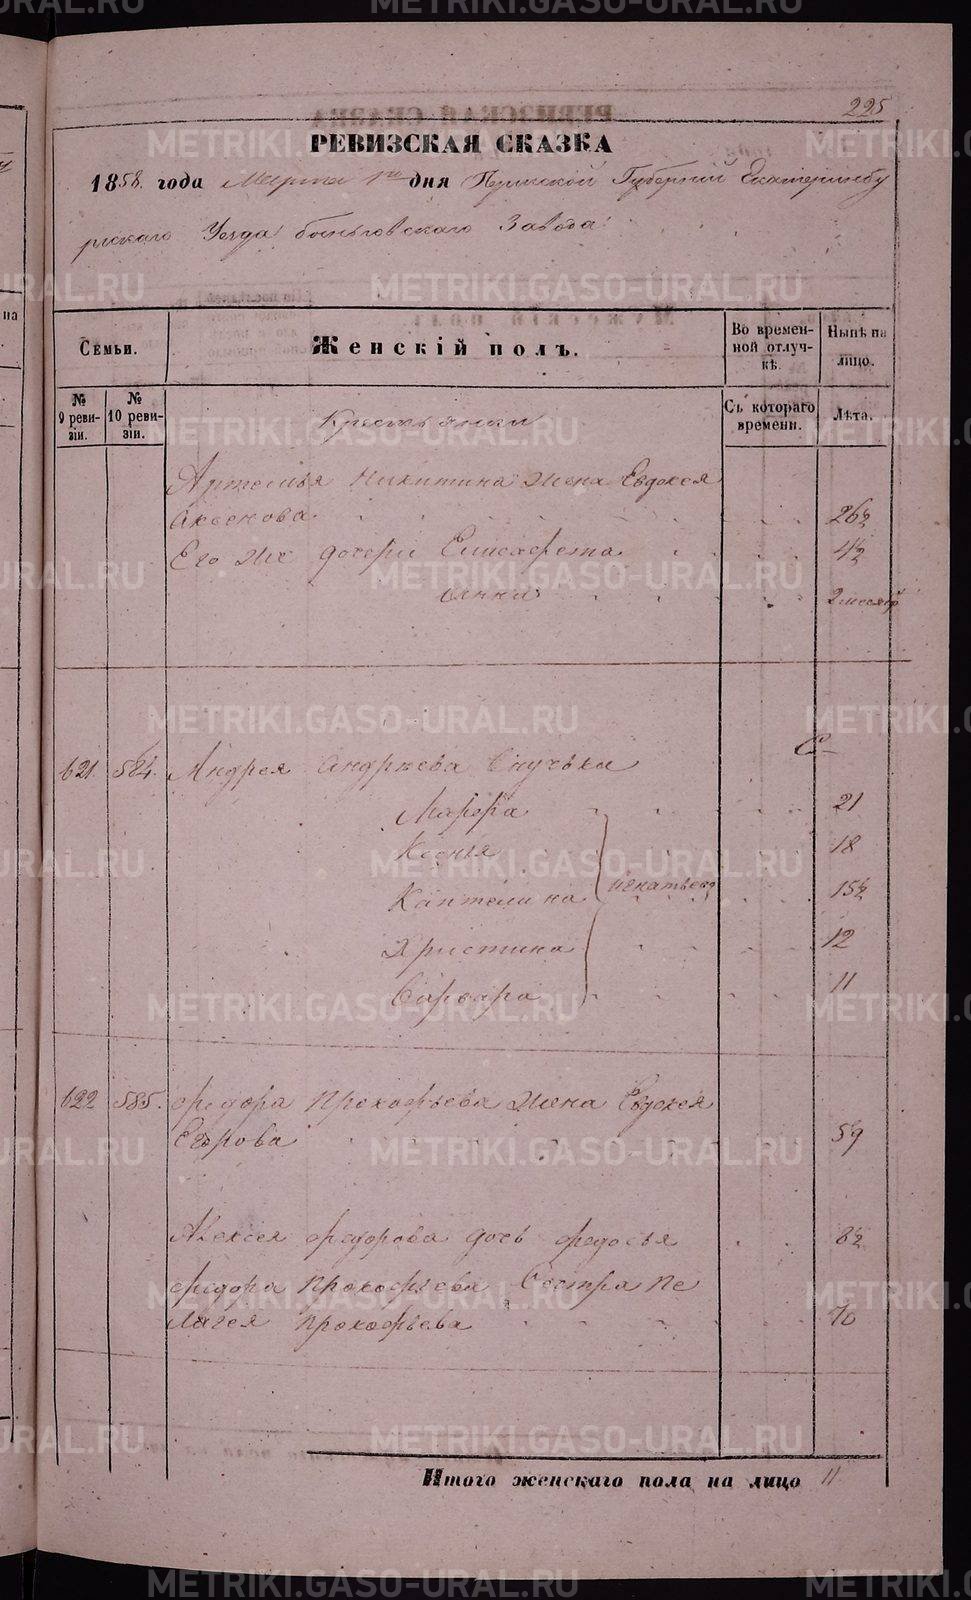 225
РЕВИЗСКАЯ СКАЗКА
1858. года Марта 1го дня Пермской Губерніи Екатеринбу
ргскаго Уезда Быньговскаго Завода
Семьи.
Женскій полъ.
Во времен-
ной отлуч-
кѣ.
Нынѣ на
лицо.
№
9 реви-
зіи.
№
10 реви-
зіи.
Съ котораго
времени.
Лѣта.
Крестьянки
Артемья Никитина жена Евдокея
Аксенова 26½
Его же дочери Елисафета 4½
Анна 2 месяц
621. 584. Андрея Андреева Внучька
Марфа 21
Ксенья 18
Каптелина Игнатьева 15½
Христина 12
Варвара 11
622 585. Федора Прокофьева жена Евдокея
Егорова 59
Алексея Федорова дочь Федосья 8½
Федора Прокофьева Сестра Пе
лагея Прокофьева 70
Итого женскаго пола на лицо 11
METRIKI.GASO-URAL.RU